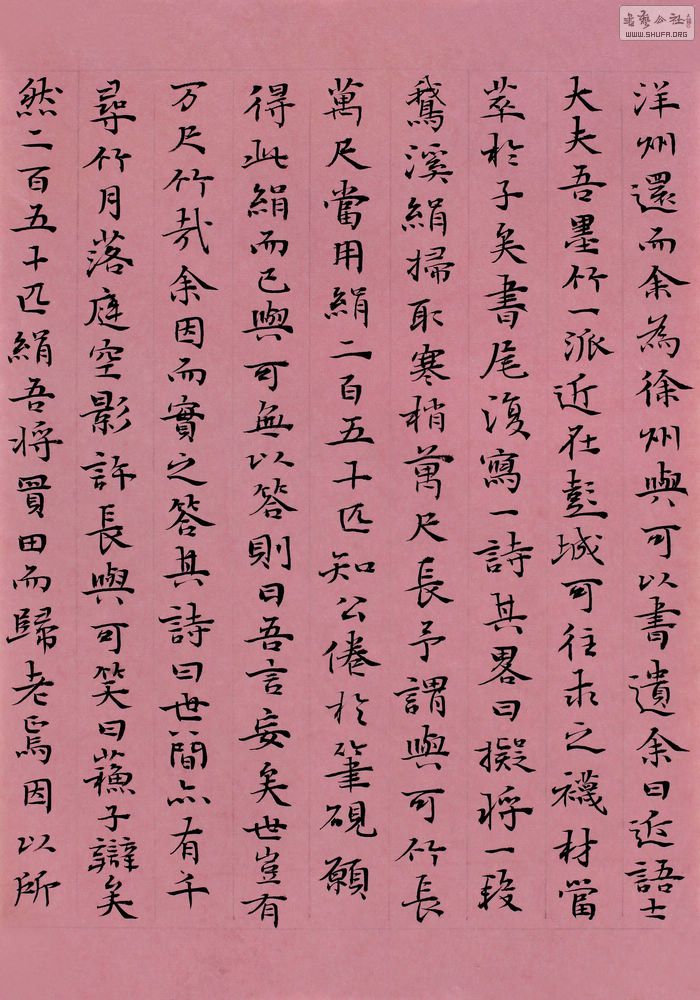 洋州還而余為徐州與可以書遺余曰近語士
大夫吾墨竹一派近在彭城可往求之襪材當
萃於子矣書尾復寫一詩其畧曰擬將一段
鵞溪絹掃取寒梢萬尺長予謂與可竹長
萬尺當用絹二百五十匹知公倦於筆硯願
得此絹而已與可無以答則曰吾言妄矣世豈有
万尺竹哉余因而實之答其詩曰世間亦有千
尋竹月落庭空影許長與可笑曰蘓子辯矣
然二百五十匹絹吾將買田而歸老焉因以所
書藝公社
WWW.SHUFA.ORG